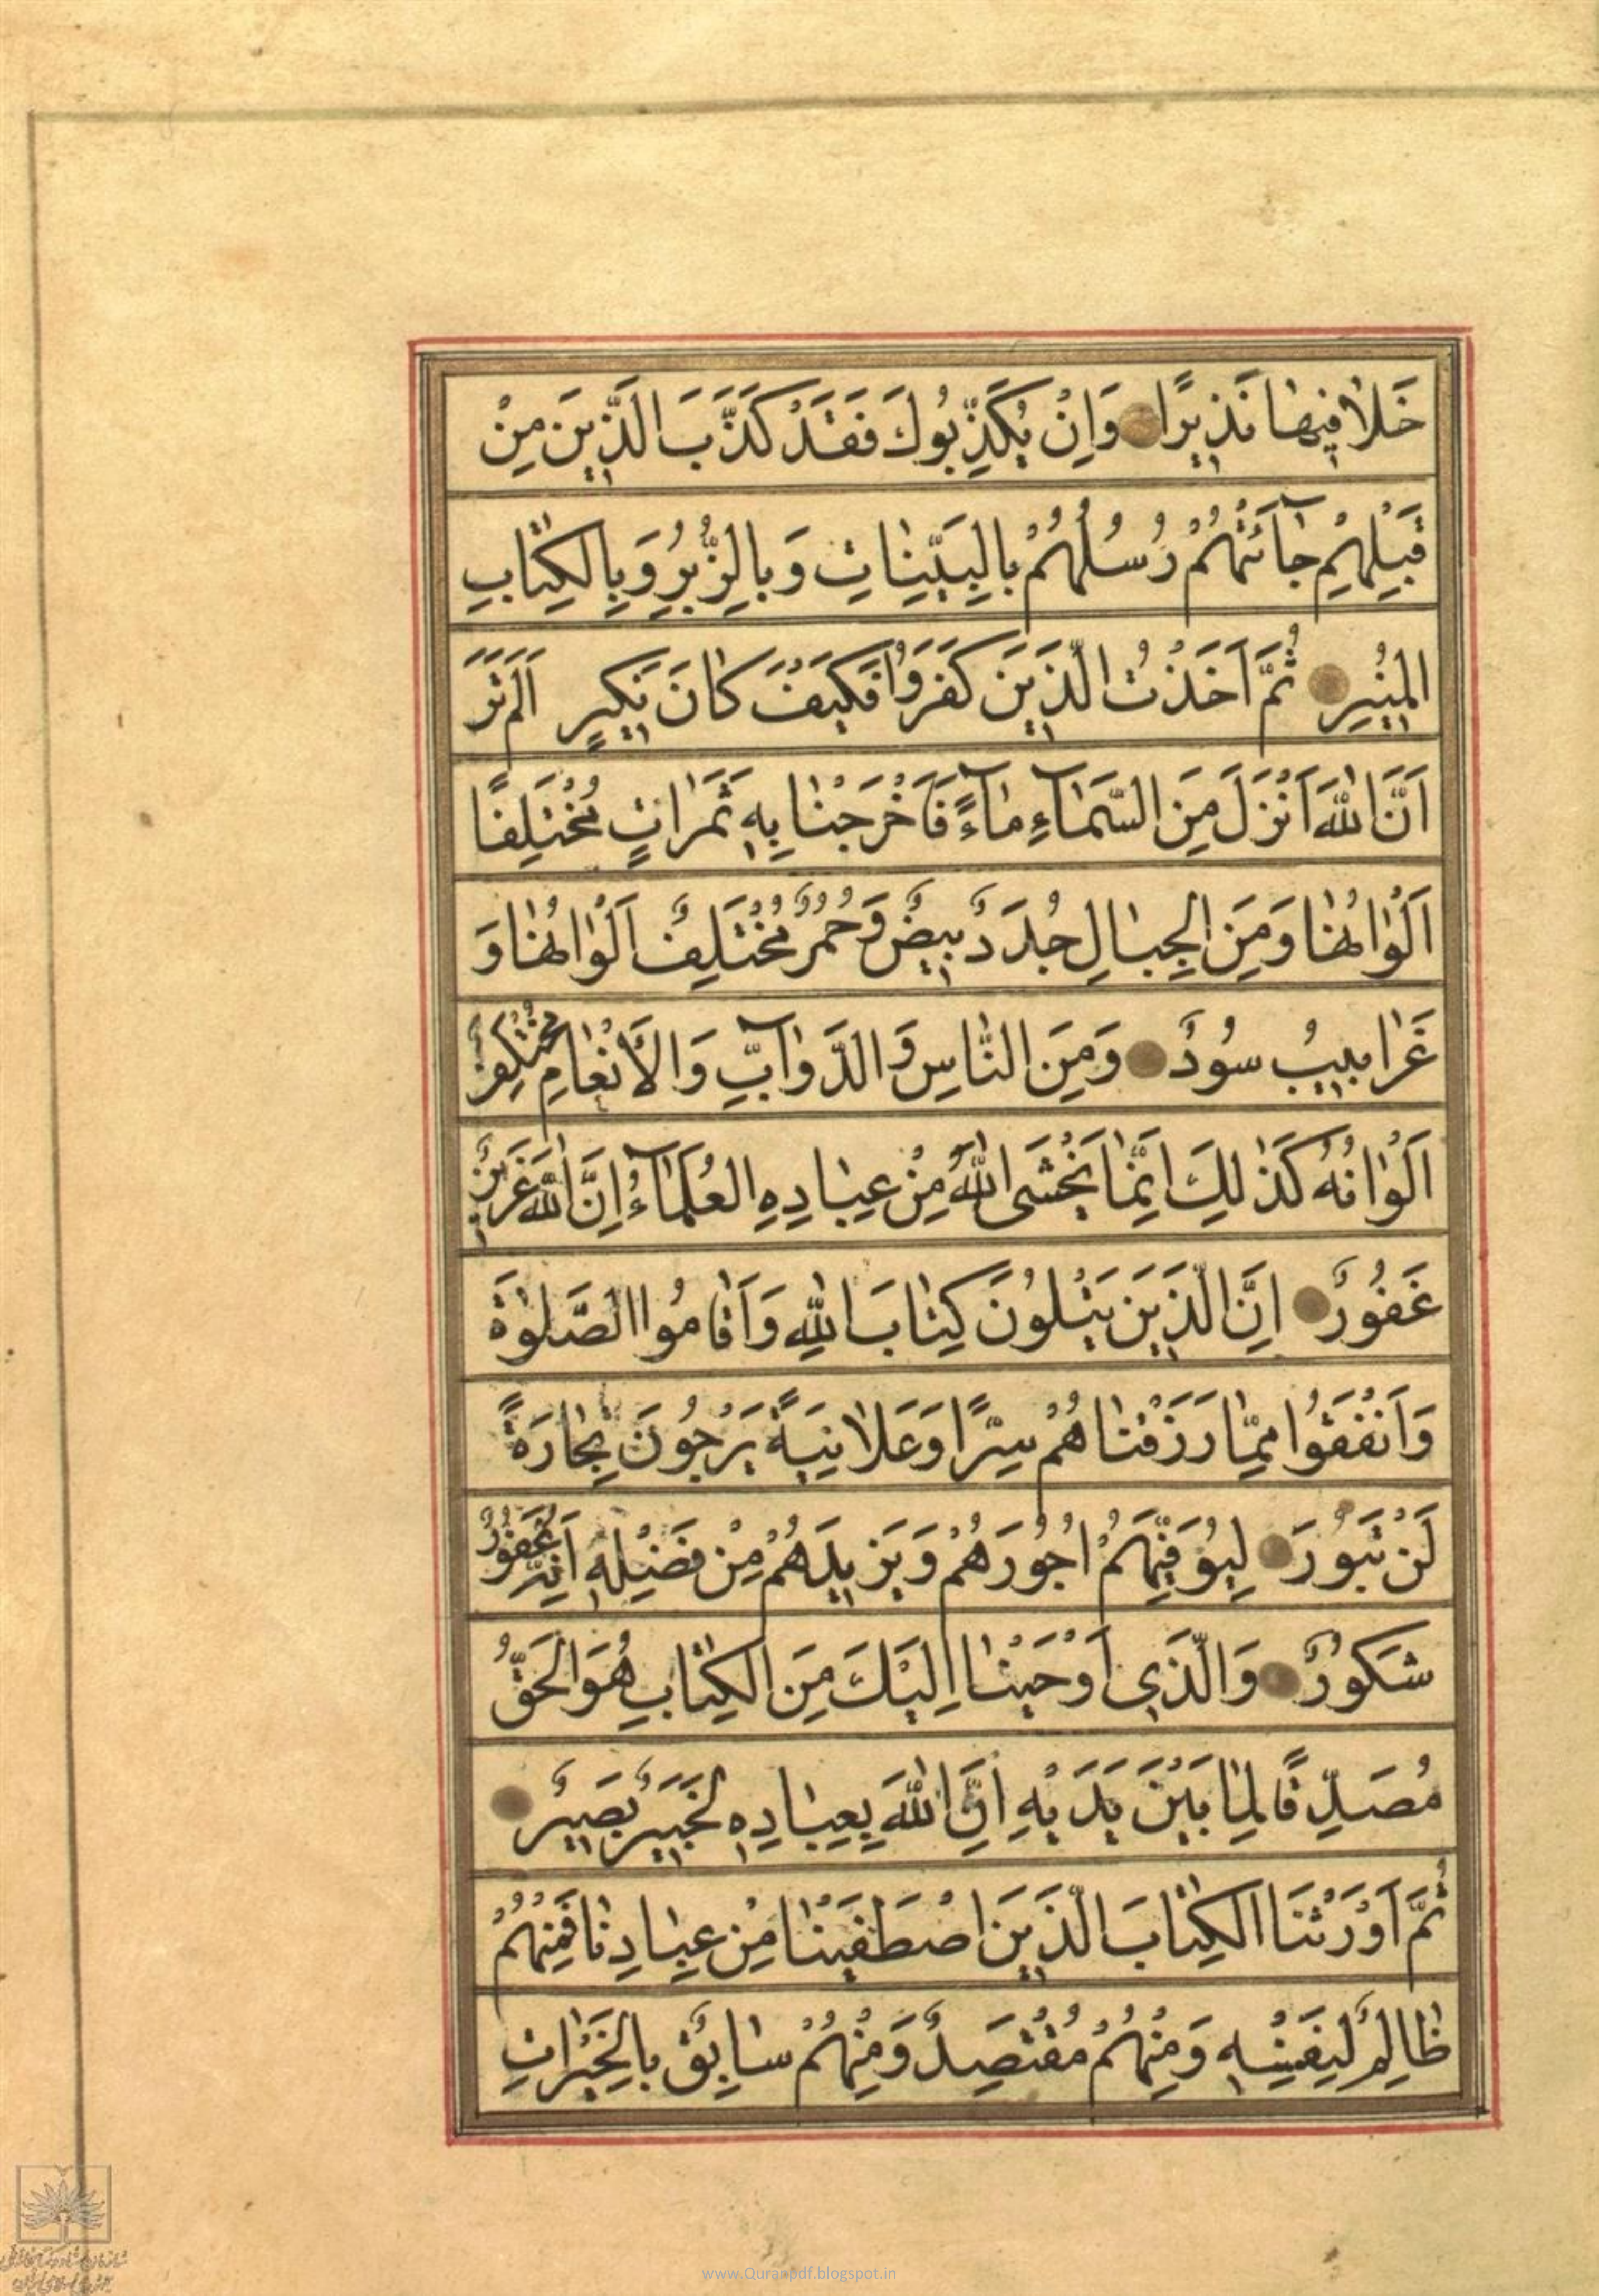 خَلاٰ فِيهٰا نَذِيرًا وَاِنْ يُكَذِّبُوكَ فَقَدْ كَذَّبَ الَّذِينَ مِنْ
قَبْلِهِمْ جٰٓائَتْهُمْ رُسُلُهُمْ بِالْبَيِّنٰاتِ وَبِالزُّبُرِ وَبِالْكِتٰابِ
الْمُنِيرِ ثُمَّ اَخَذْتُ الَّذِينَ كَفَرُوا فَكَيْفَ كٰانَ نَكِيرِ اَلَمْ تَرَ
اَنَّ اللّٰهَ اَنْزَلَ مِنَ السَّمٰٓاءِ مٰٓاءً فَاَخْرَجْنٰا بِهِ ثَمَرٰاتٍ مُخْتَلِفًا
اَلْوٰانُهٰا وَمِنَ الْجِبٰالِ جُدَدٌ بِيضٌ وَحُمْرٌ مُخْتَلِفٌ اَلْوٰانُهٰا وَ
غَرٰابِيبُ سُودٌ وَمِنَ النّٰاسِ وَالدَّوٰٓابِّ وَالْاَنْعٰامِ مُخْتَلِفٌ
اَلْوٰانُهُ كَذٰلِكَ اِنَّمٰا يَخْشَى اللّٰهَ مِنْ عِبٰادِهِ الْعُلَمٰٓاءُ اِنَّ اللّٰهَ عَزِيزٌ
غَفُورٌ اِنَّ الَّذِينَ يَتْلُونَ كِتٰابَ اللّٰهِ وَاَقٰامُوا الصَّلٰوةَ
وَاَنْفَقُوا مِمّٰا رَزَقْنٰاهُمْ سِرًّا وَعَلاٰنِيَةً يَرْجُونَ تِجٰارَةً
لَنْ تَبُورَ لِيُوَفِّيَهُمْ اُجُورَهُمْ وَيَزِيدَهُمْ مِنْ فَضْلِهِ اِنَّهُ غَفُورٌ
شَكُورٌ وَالَّذِي اَوْحَيْنٰا اِلَيْكَ مِنَ الْكِتٰابِ هُوَ الْحَقُّ
مُصَدِّقًا لِمٰا بَيْنَ يَدَيْهِ اِنَّ اللّٰهَ بِعِبٰادِهِ لَخَبِيرٌ بَصِيرٌ
ثُمَّ اَوْرَثْنَا الْكِتٰابَ الَّذِينَ اصْطَفَيْنٰا مِنْ عِبٰادِنٰا فَمِنْهُمْ
ظٰالِمٌ لِنَفْسِهِ وَمِنْهُمْ مُقْتَصِدٌ وَمِنْهُمْ سٰابِقٌ بِالْخَيْرٰاتِ
www.Quranpdf.blogspot.in